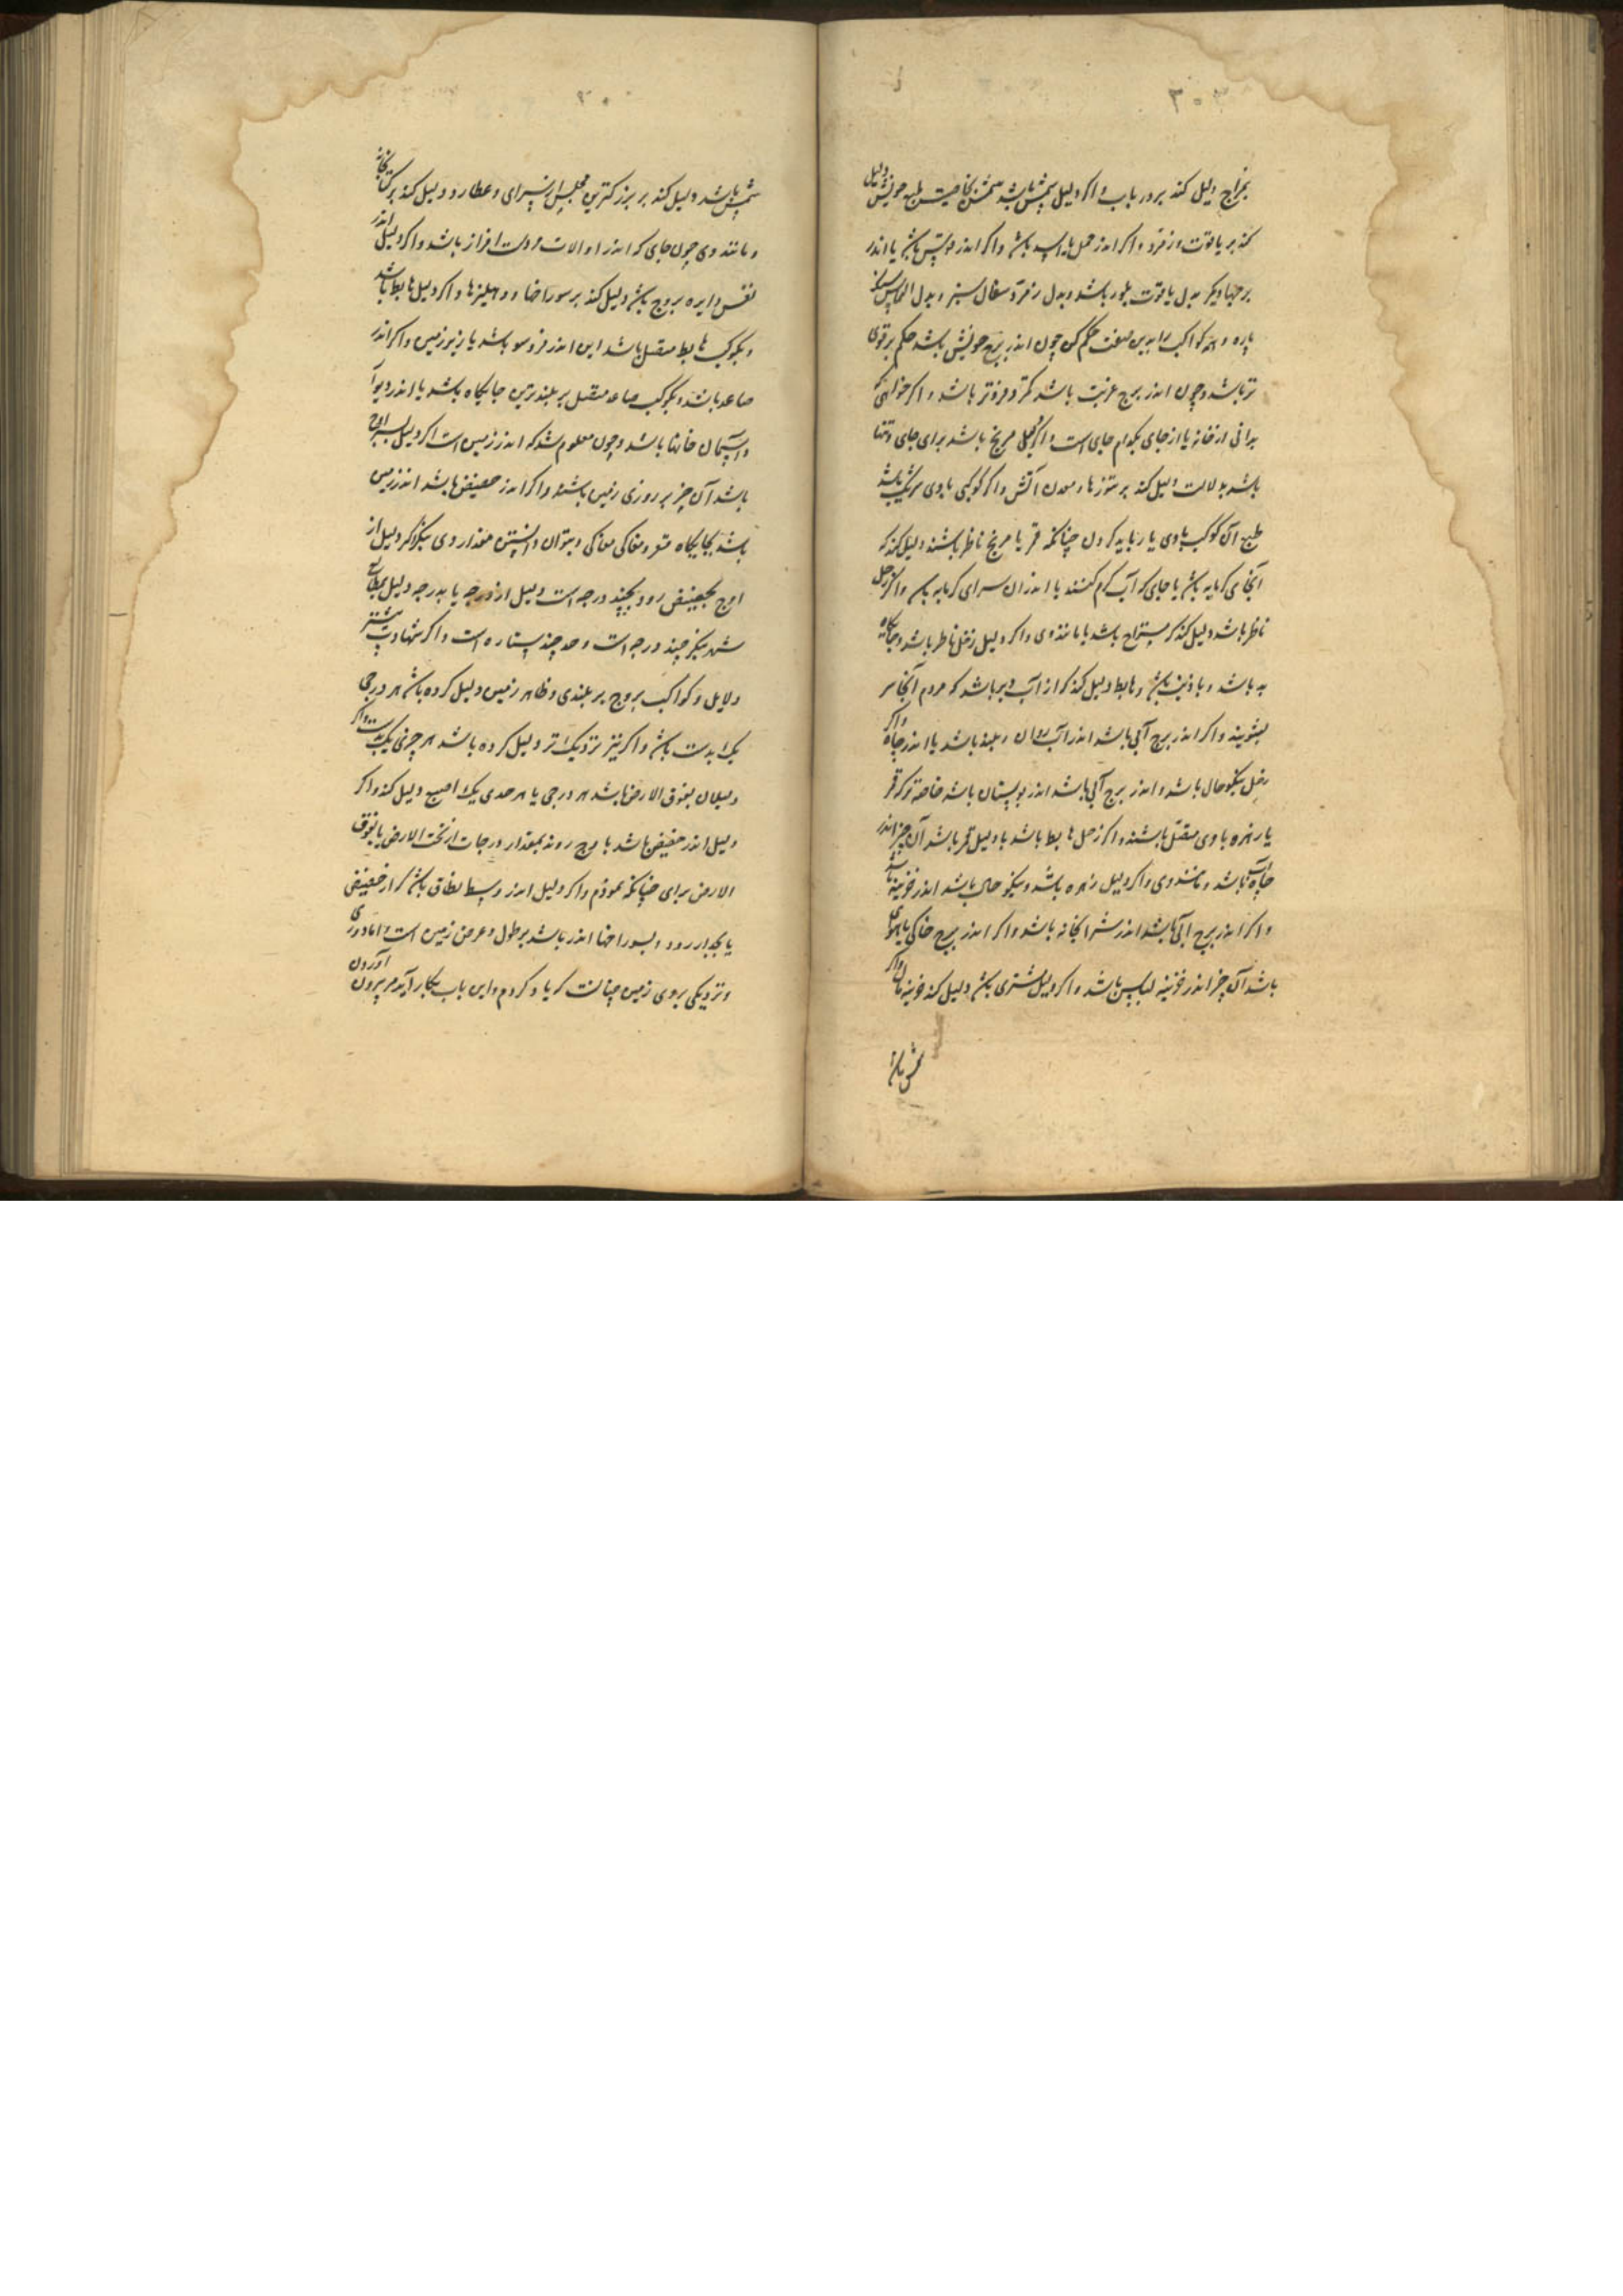 دلیل کند بر در باب و اگر دلیل شمس باشد طبع خویش
کند بر یاقوت و زمرد و اگر اندر حمل باشد و اگر اندر باشد یا اندر
برجها دیگر بدل یاقوت بلور باشد و بدل زمرد سفال سبز و بدل الماس
پاره و همه کواکب را بدین صفت حکم کن چون اندر برج خویش باشد حکم بر قوی
تر باشد و چون اندر برج غربت باشد کمتر و فروتر باشد و اگر خواهی که
بدانی از خانه یا از جای بکدام جای است و اگر دلیل مریخ باشد برای جای
باشد بدلالت دلیل کند بر تنورها و معدن آتش و اگر کوکبی با وی شریک باشد
طبع آن کوکب با وی یار باید کردن چنانکه قمر با مریخ ناظر باشند دلیل کند که
آنجای گرمابه باشد یا جای که آب گرم کنند یا اندران سرای گرمابه باشد و اگر زحل
ناظر باشد دلیل کند که مستراح باشد یا مانند وی و اگر دلیل زحل ناظر باشد
باشد و هابط دلیل کند که از آب باشد که مردم آنجا سر
بشویند و اگر اندر برج آبی باشد اندر آب روان و بلند باشد یا اندر چاه و اگر
زحل نیکو حال باشد و اندر برج آبی باشد اندر بوستان باشد خاصه که قمر
یا زهره با وی متصل باشند و اگر زحل هابط باشد یا دلیل قمر باشد آن چیز اندر
چاه آب باشد و مانند وی و اگر دلیل زهره باشد و نیکو حال باشد اندر خزینه باشد
و اگر اندر برج آبی باشد اندر شرابخانه باشد و اگر اندر برج خاکی یا هوایی
باشد آن چیز اندر خزینه لباس باشد و اگر دلیل مشتری باشد دلیل کند خزینه مال و اگر
شمس باشد
شمس باشد دلیل کند بر بزرگترین مجلس اندر سرای و عطارد دلیل کند بر کتابخانه
و مانند وی چون جای که اندر او آلات و دست افزار باشد و اگر دلیل اندر
نفس دایره بروج باشد دلیل کند بر سوراخها و دهلیزها و اگر دلیل هابط باشد
و بکوکب هابط متصل باشد این اندر فروسو باشد یا زیر زمین و اگر اندر
صاعد باشد و بکوکب صاعد متصل بر بلندترین جایگاه باشد یا اندر دیوار
و آسمان خانها باشد و چون معلوم شد که اندر زمین است اگر دلیل بر اوج
باشد آن چیز بر روزی زمین باشد و اگر اندر حضیض باشد اندر زمین
باشد بجایگاه مقعر و مغاکی مغاکی و بتوان دانستن مقدار وی بنگر اگر دلیل از
اوج بحضیض رود بچند درجه است دلیل از درجه یا بدرجه دلیل
بنگر چند درجه است و حد چند ستاره است و اگر شهادت بیشتر
دلایل و کواکب بروج بر بلندی و ظاهر زمین دلیل کرده باشد هر درجی
یک بدست باشد و اگر نیز نزدیک تر دلیل کرده باشد هر چیزی یک بدست و اگر
دلیلان بفوق الارض باشد هر درجی یا هر حدی یک اصبع دلیل کند و اگر
دلیل اندر حضیض باشد با اوج روند بمقدار درجات از تحت الارض یا بفوق
الارض برای چنانکه نموذم و اگر دلیل اندر وسط نطاق باشد از حضیض
یا رود و بسوراخها اندر باشد بر طول و عرض زمین است و اما دوری
و نزدیکی بروی زمین چنانست که یاد کردم و این باب بکار آید مر بیرون آوردن